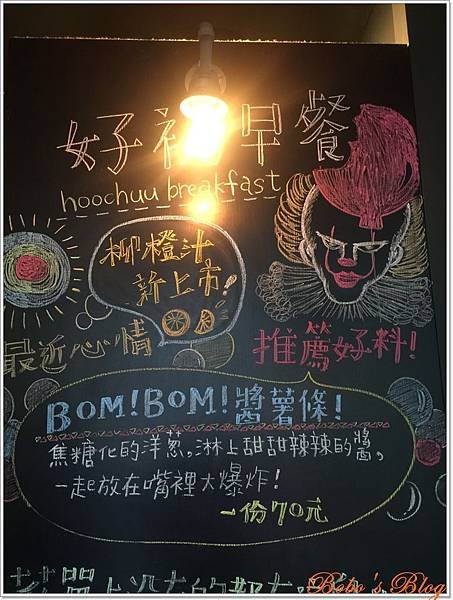 好初早餐
hoochuu breakfast
柳橙汁
新上市!
最近心情
推薦好料!
BOM!BOM!醬薯條!
焦糖化的洋蔥。淋上甜甜辣辣的醬。
一起e放在嘴裡大爆炸!
一份70元
上沒有的都在
Bobo's Blog